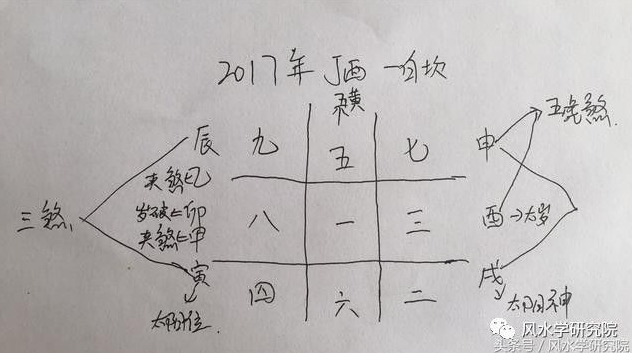 2017年 丁酉 一白坎
五黄
辰 九 五 七 申 五鬼煞
夹煞乙
三煞 岁破←卯 八 一 三 酉→太岁
夹煞←甲
寅 四 六 二 戌
太阴位 太阳神
风水学研究院
头条号 / 风水学研究院